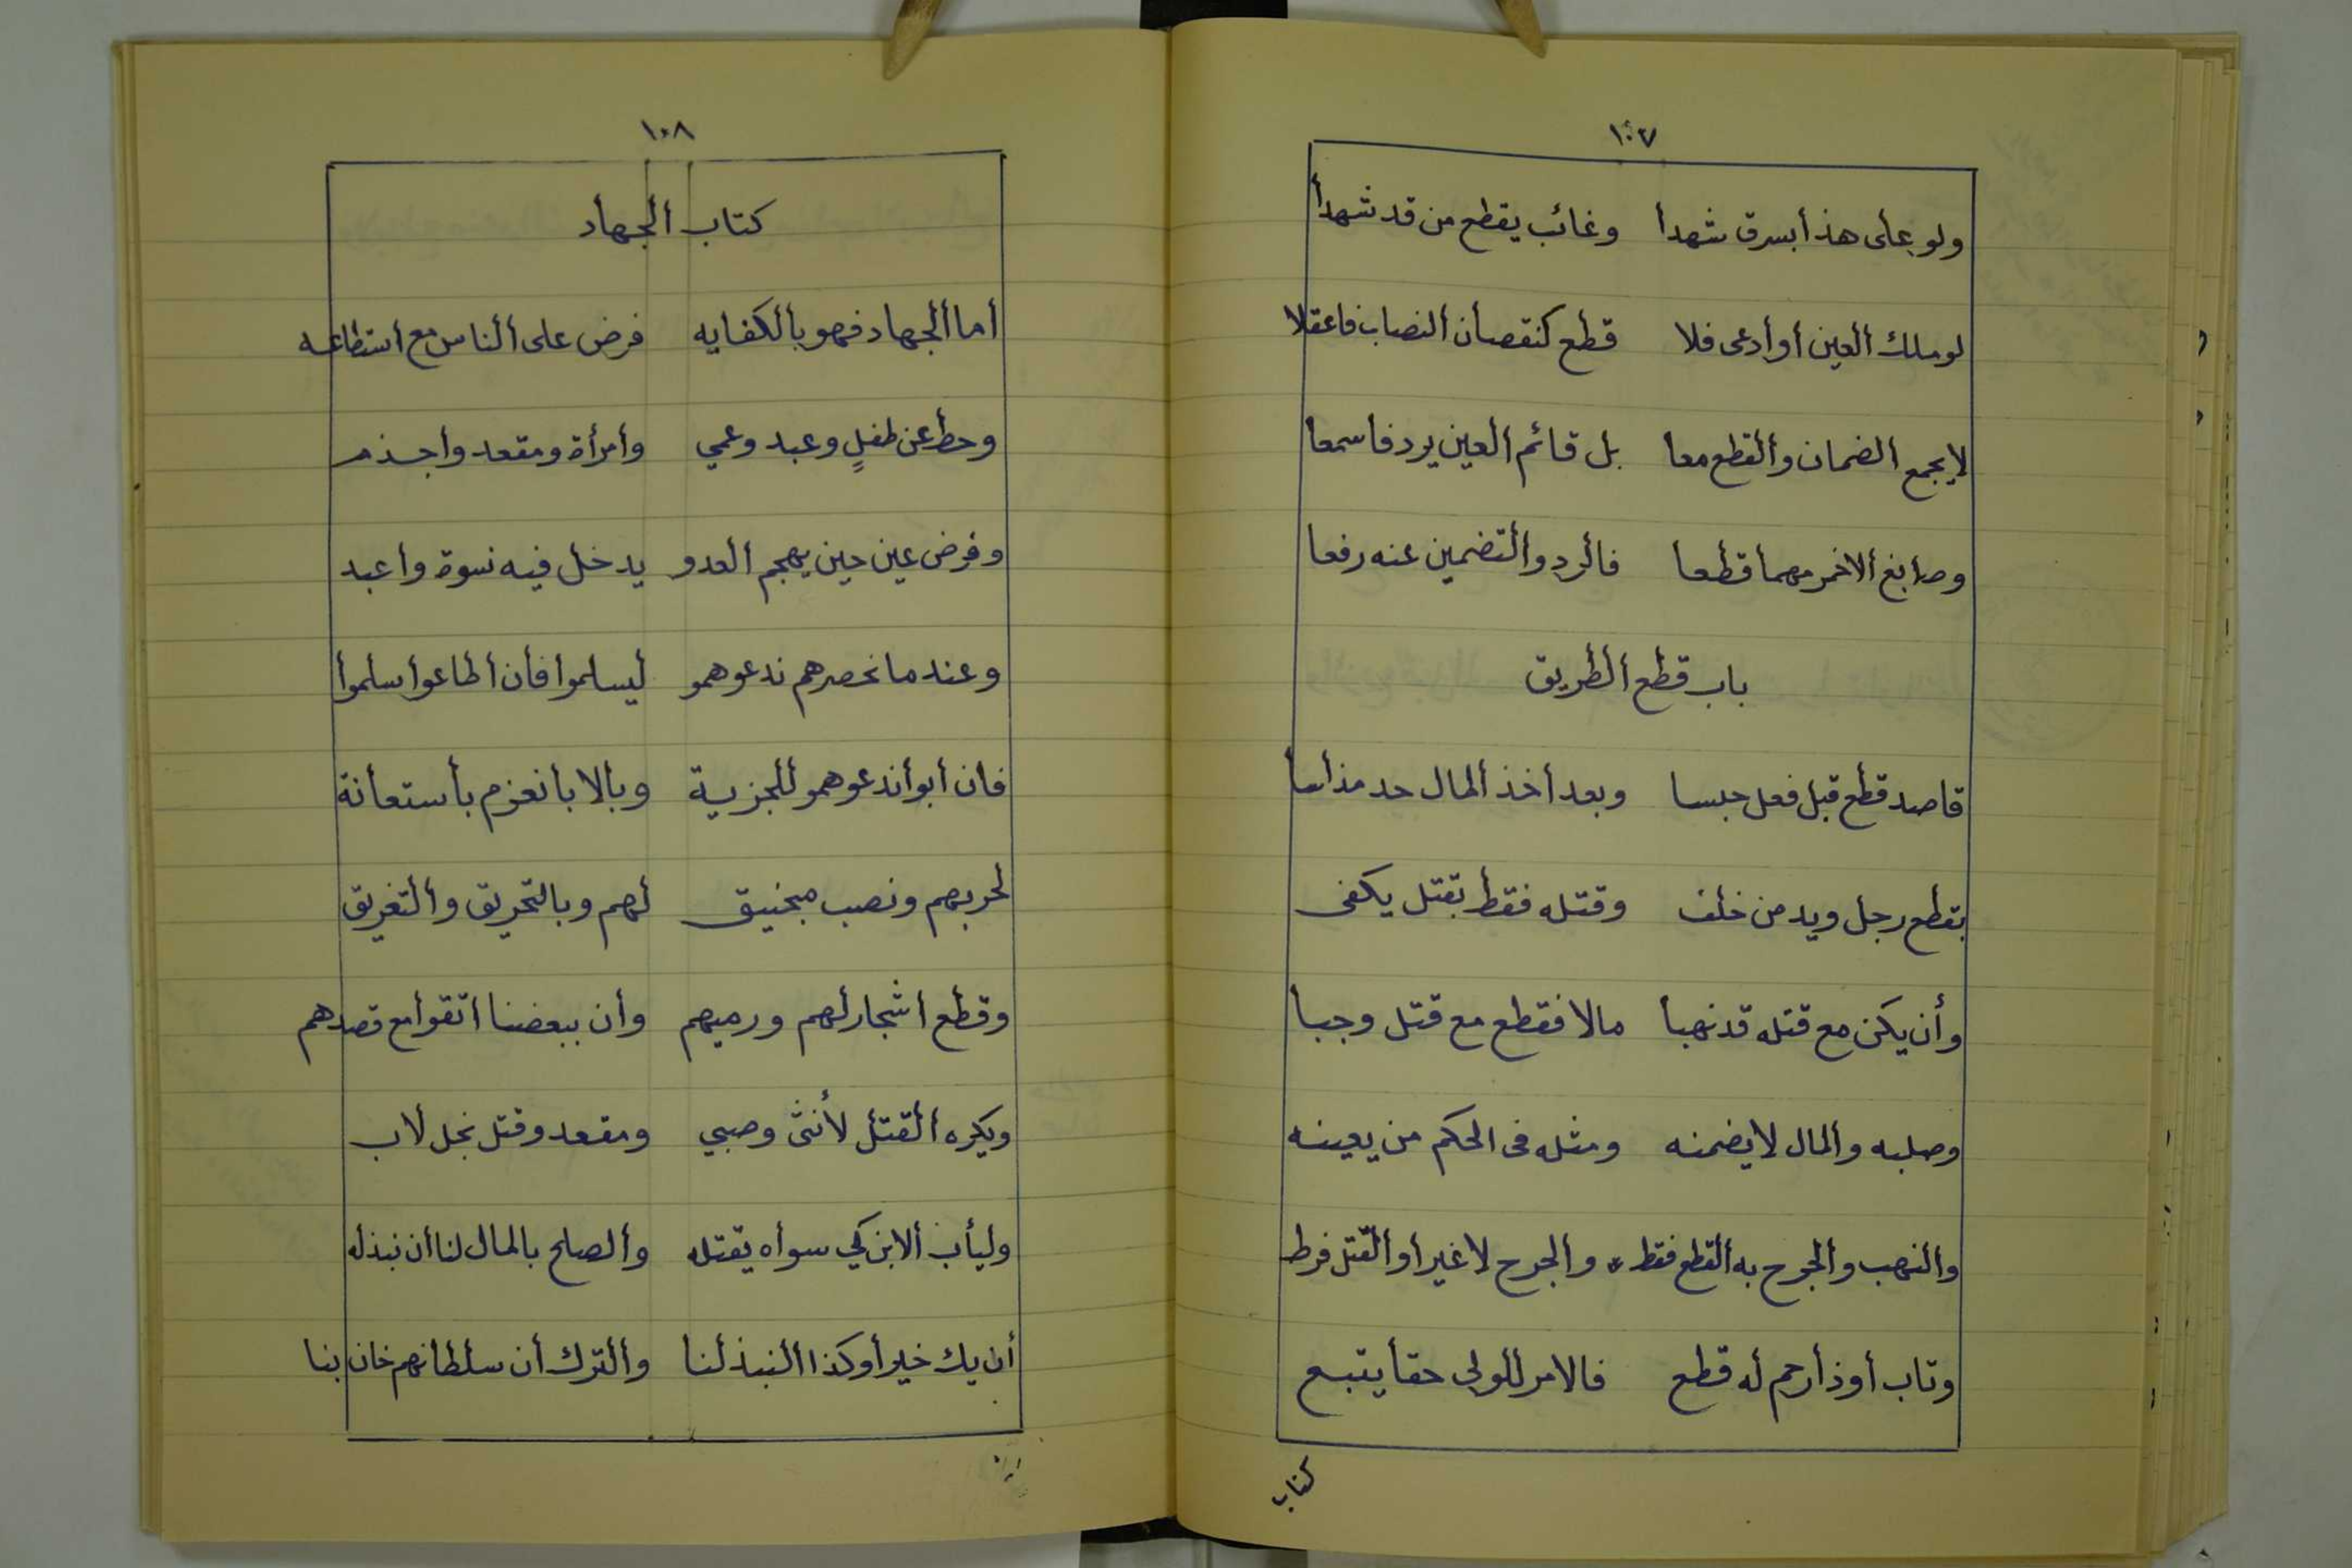 ١٠٧
ولو على هذا بسرق شهدا وغائب يقطع من قد شهدا
لو ملك العين أو أدعى فلا قطع كنقصان النصاب فاعقلا
لا يجمع الضمان والقطع معا بل قائم العين يرد فاسمعا
وصابغ الاحمر مهما قطعا فالرد والتضمين عنه رفعا
باب قطع الطريق
قاصد قطع قبل فعل حبسا وبعد أخذ المال حد مذ أسا
بقطع رجل ويد من خلف وقتله فقط بقتل يكفى
وأن يكن مع قتله قد نهبا مالا فقطع مع قتل وجبا
وصلبه والمال لا يضمنه ومثله فى الحكم من يعينه
والنهب والجرح به القطع فقط * والجرح لا غير او القتل فرط
وتاب أو ذا رحم له قطع فالامر للولى حقا يتبع
كتاب
١٠٨
كتاب الجهاد
أما الجهاد فهو بالكفايه فرض على الناس مع استطاعه
وحط عن طفلٍ وعبد وعمي وأمرأة ومقعد واجذم
وفرض عين حين يهجم العدو يدخل فيه نسوة واعبد
وعندما نحصرهم ندعوهمو ليسلموا فأن أطاعوا سلموا
فان أبوا ندعوهمو للجزية وبالابا نعزم بأستعانة
لحربهم ونصب منجنيق لهم وبالتحريق والتغريق
وقطع أشجار لهم ورميهم وأن ببعضنا اتقوا مع قصدهم
ويكره القتل لأنثى وصبي ومقعد وقتل نجل لاب
وليأب الابن كي سواه يقتله والصلح بالمال لنا أن نبذله
أن يك خيرا وكذا النبذ لنا والترك أن سلطانهم خان بنا